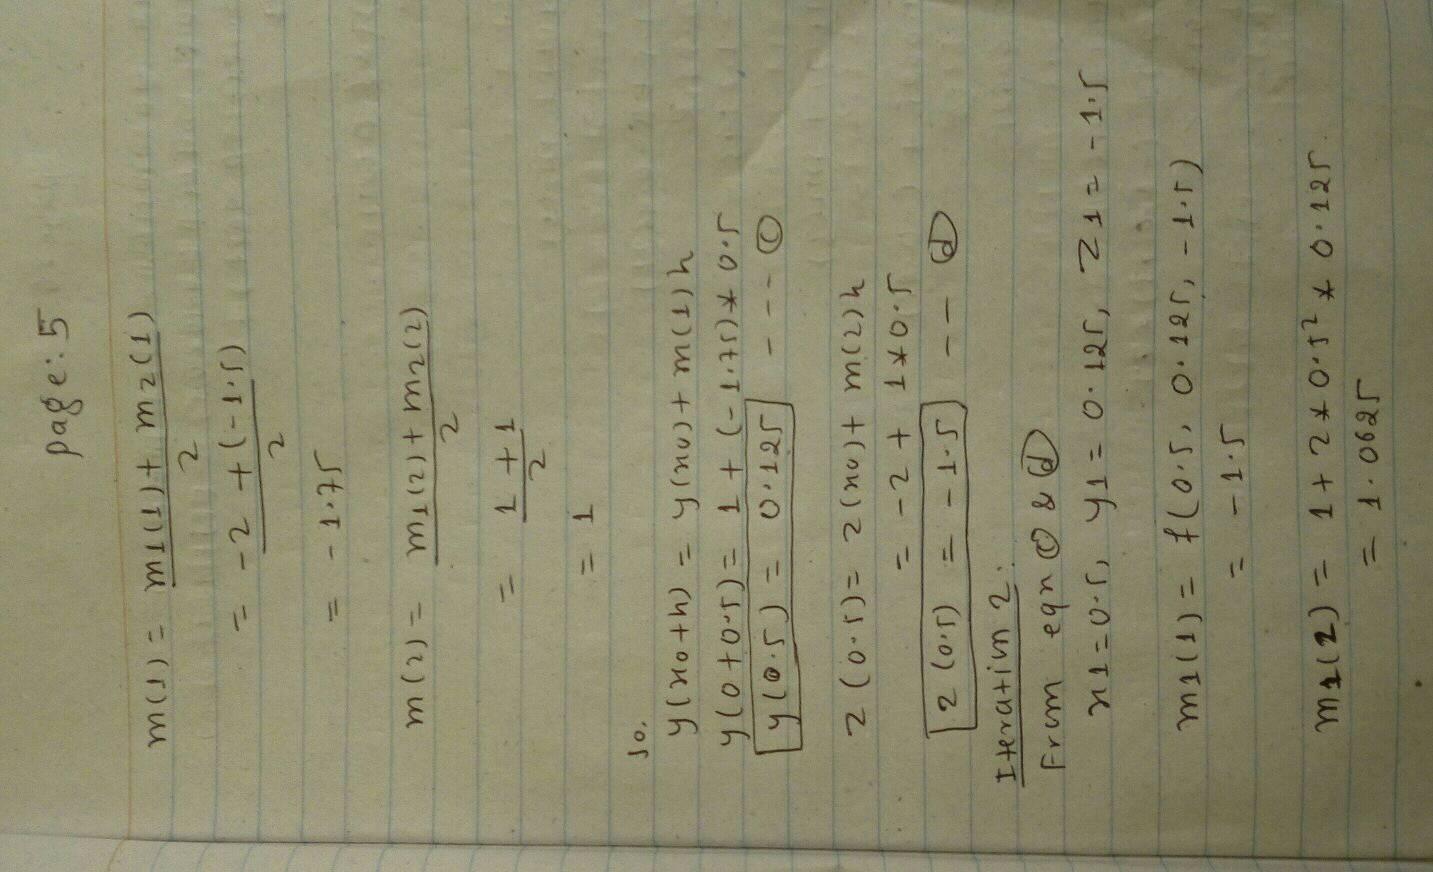 page: 5
m(1) = m1(1) + m2(1) / 2
= -2 + (-1.5) / 2
= -1.75
m(2) = m1(2) + m2(2) / 2
= 1 + 1 / 2
= 1
so,
y(x0+h) = y(x0) + m(1)h
y(0+0.5) = 1 + (-1.75)*0.5
y(0.5) = 0.125 --- ©
z(0.5) = z(x0) + m(2)h
= -2 + 1*0.5
z(0.5) = -1.5 -- ⓓ
Iteration 2:
From eqn © & ⓓ
x1 = 0.5, y1 = 0.125, z1 = -1.5
m1(1) = f(0.5, 0.125, -1.5)
= -1.5
m1(2) = 1 + 2*0.5² * 0.125
= 1.0625